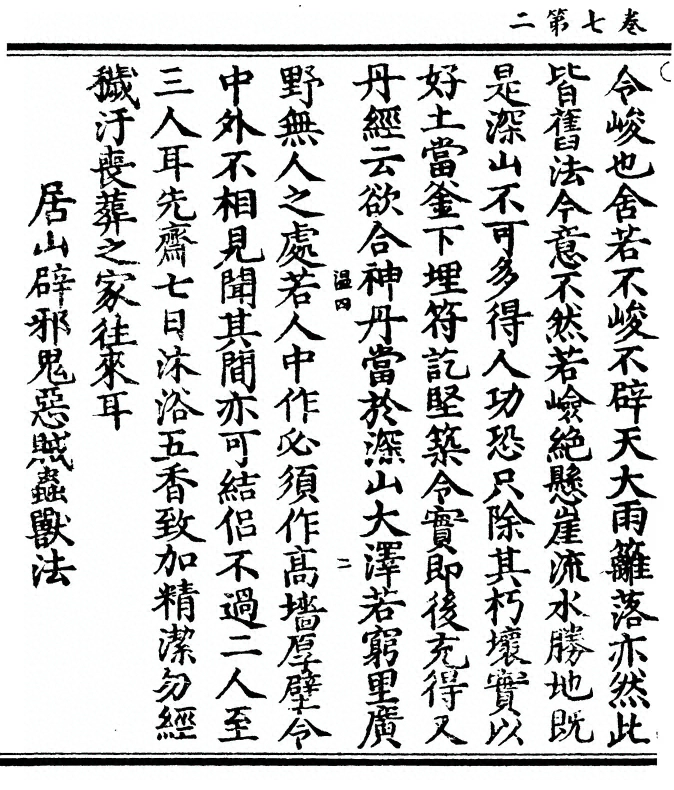 卷七第二
令峻也舍若不峻不辟天大雨籬落亦然此
皆舊法今意不然若嶮絶懸崖流水勝地既
是深山不可多得人功恐只除其朽壞實以
好土當釜下埋符訖堅築令實即後充得又
丹經云欲合神丹當於深山大澤若窮里廣
温四
二
野無人之處若人中作必須作高墻厚壁令
中外不相見聞其間亦可結侣不過二人至
三人耳先齋七日沐浴五香致加精潔勿經
穢汙喪葬之家往來耳
居山辟邪鬼惡賊蟲獸法